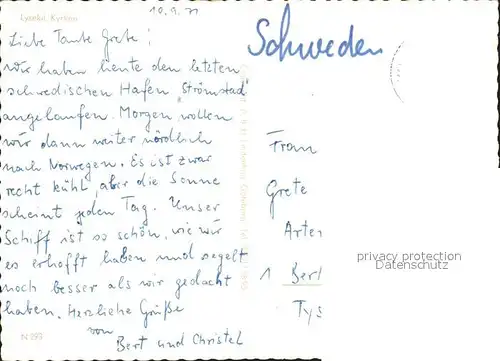 Lysekil, Kyrkan
10.9.71
Schweden
Liebe Tante Grete!
Wir haben heute den letzten
schwedischen Hafen Strömstad
angelaufen. Morgen wollen
wir dann weiter nördlich
nach Norwegen. Es ist zwar
recht kühl, aber die Sonne
scheint jeden Tag. Unser
Schiff ist so schön, wie wir
es erhofft haben und segelt
noch besser als wir gedacht
haben. Herzliche Grüße
von
Bert und Christel
N 293
Frau
Grete
Arter
1 Berl
Tys
privacy protection
Datenschutz